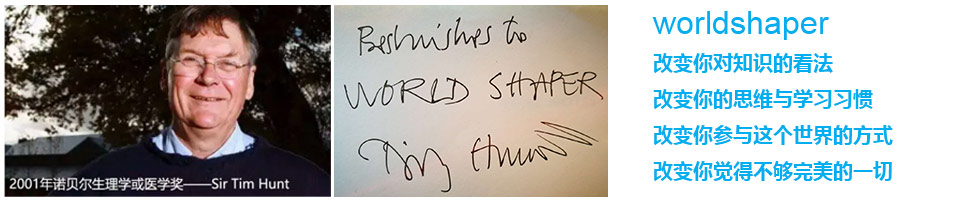 2001年诺贝尔生理学或医学奖——Sir Tim Hunt
Best wishes to
WORLD SHAPER
Tim Hunt
worldshaper
改变你对知识的看法
改变你的思维与学习习惯
改变你参与这个世界的方式
改变你觉得不够完美的一切